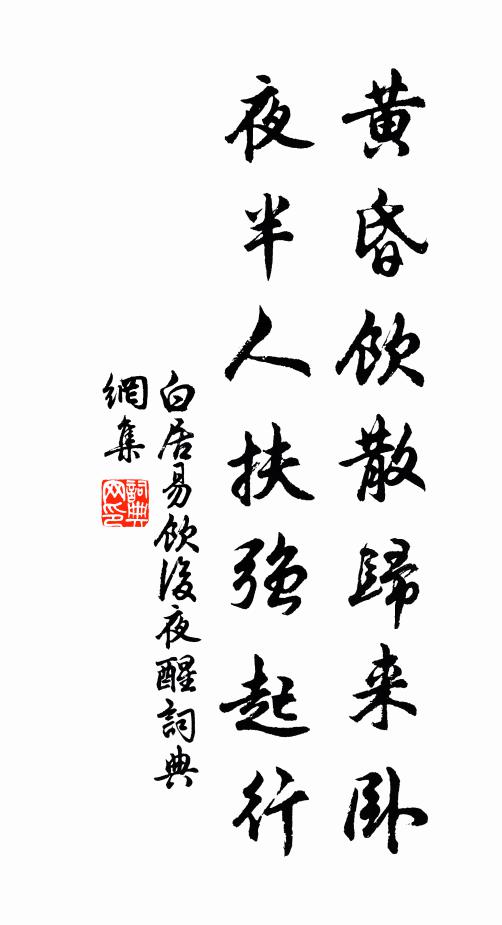 黄昏飲散歸来卧
夜半人扶強起行
白居易飲後夜醒詞典
網集
詞典
网印